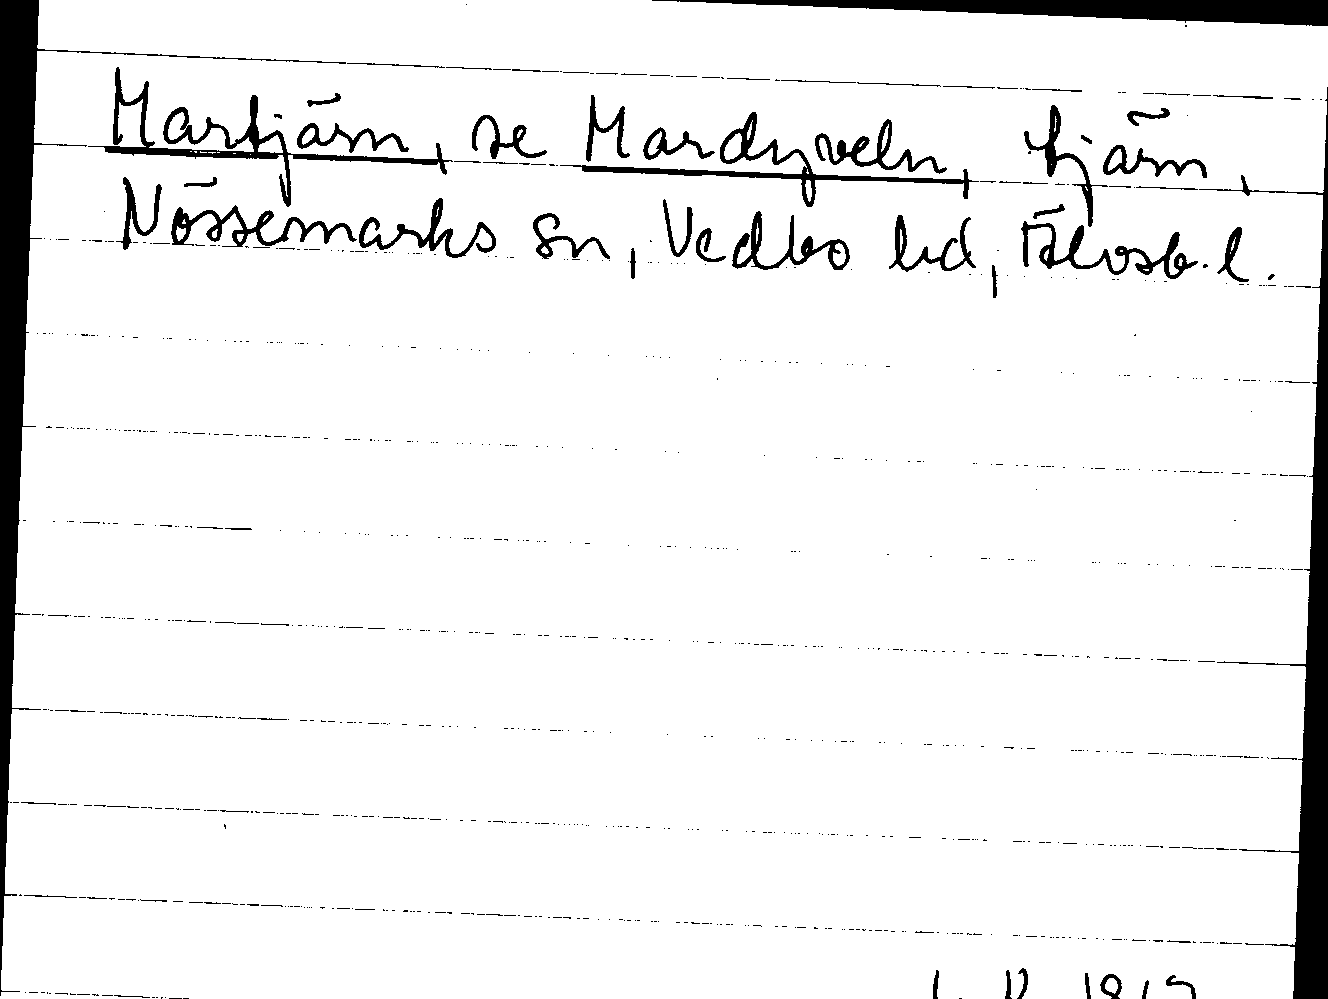 Martjärn, se Mardyveln, tjärn,
Nössemarks sn, Vedbo hd, Älvsb. l.